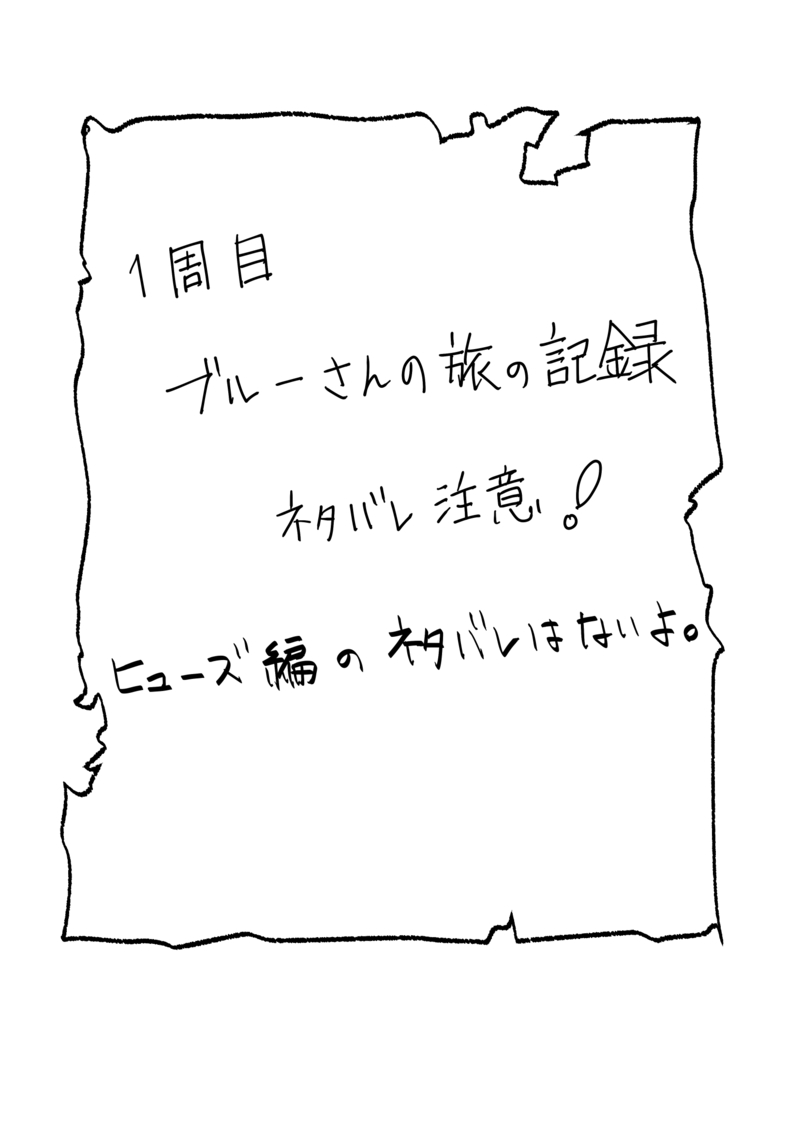 1周目
ブルーさんの旅の記録
ネタバレ注意!
ヒューズ編のネタバレはないよ。